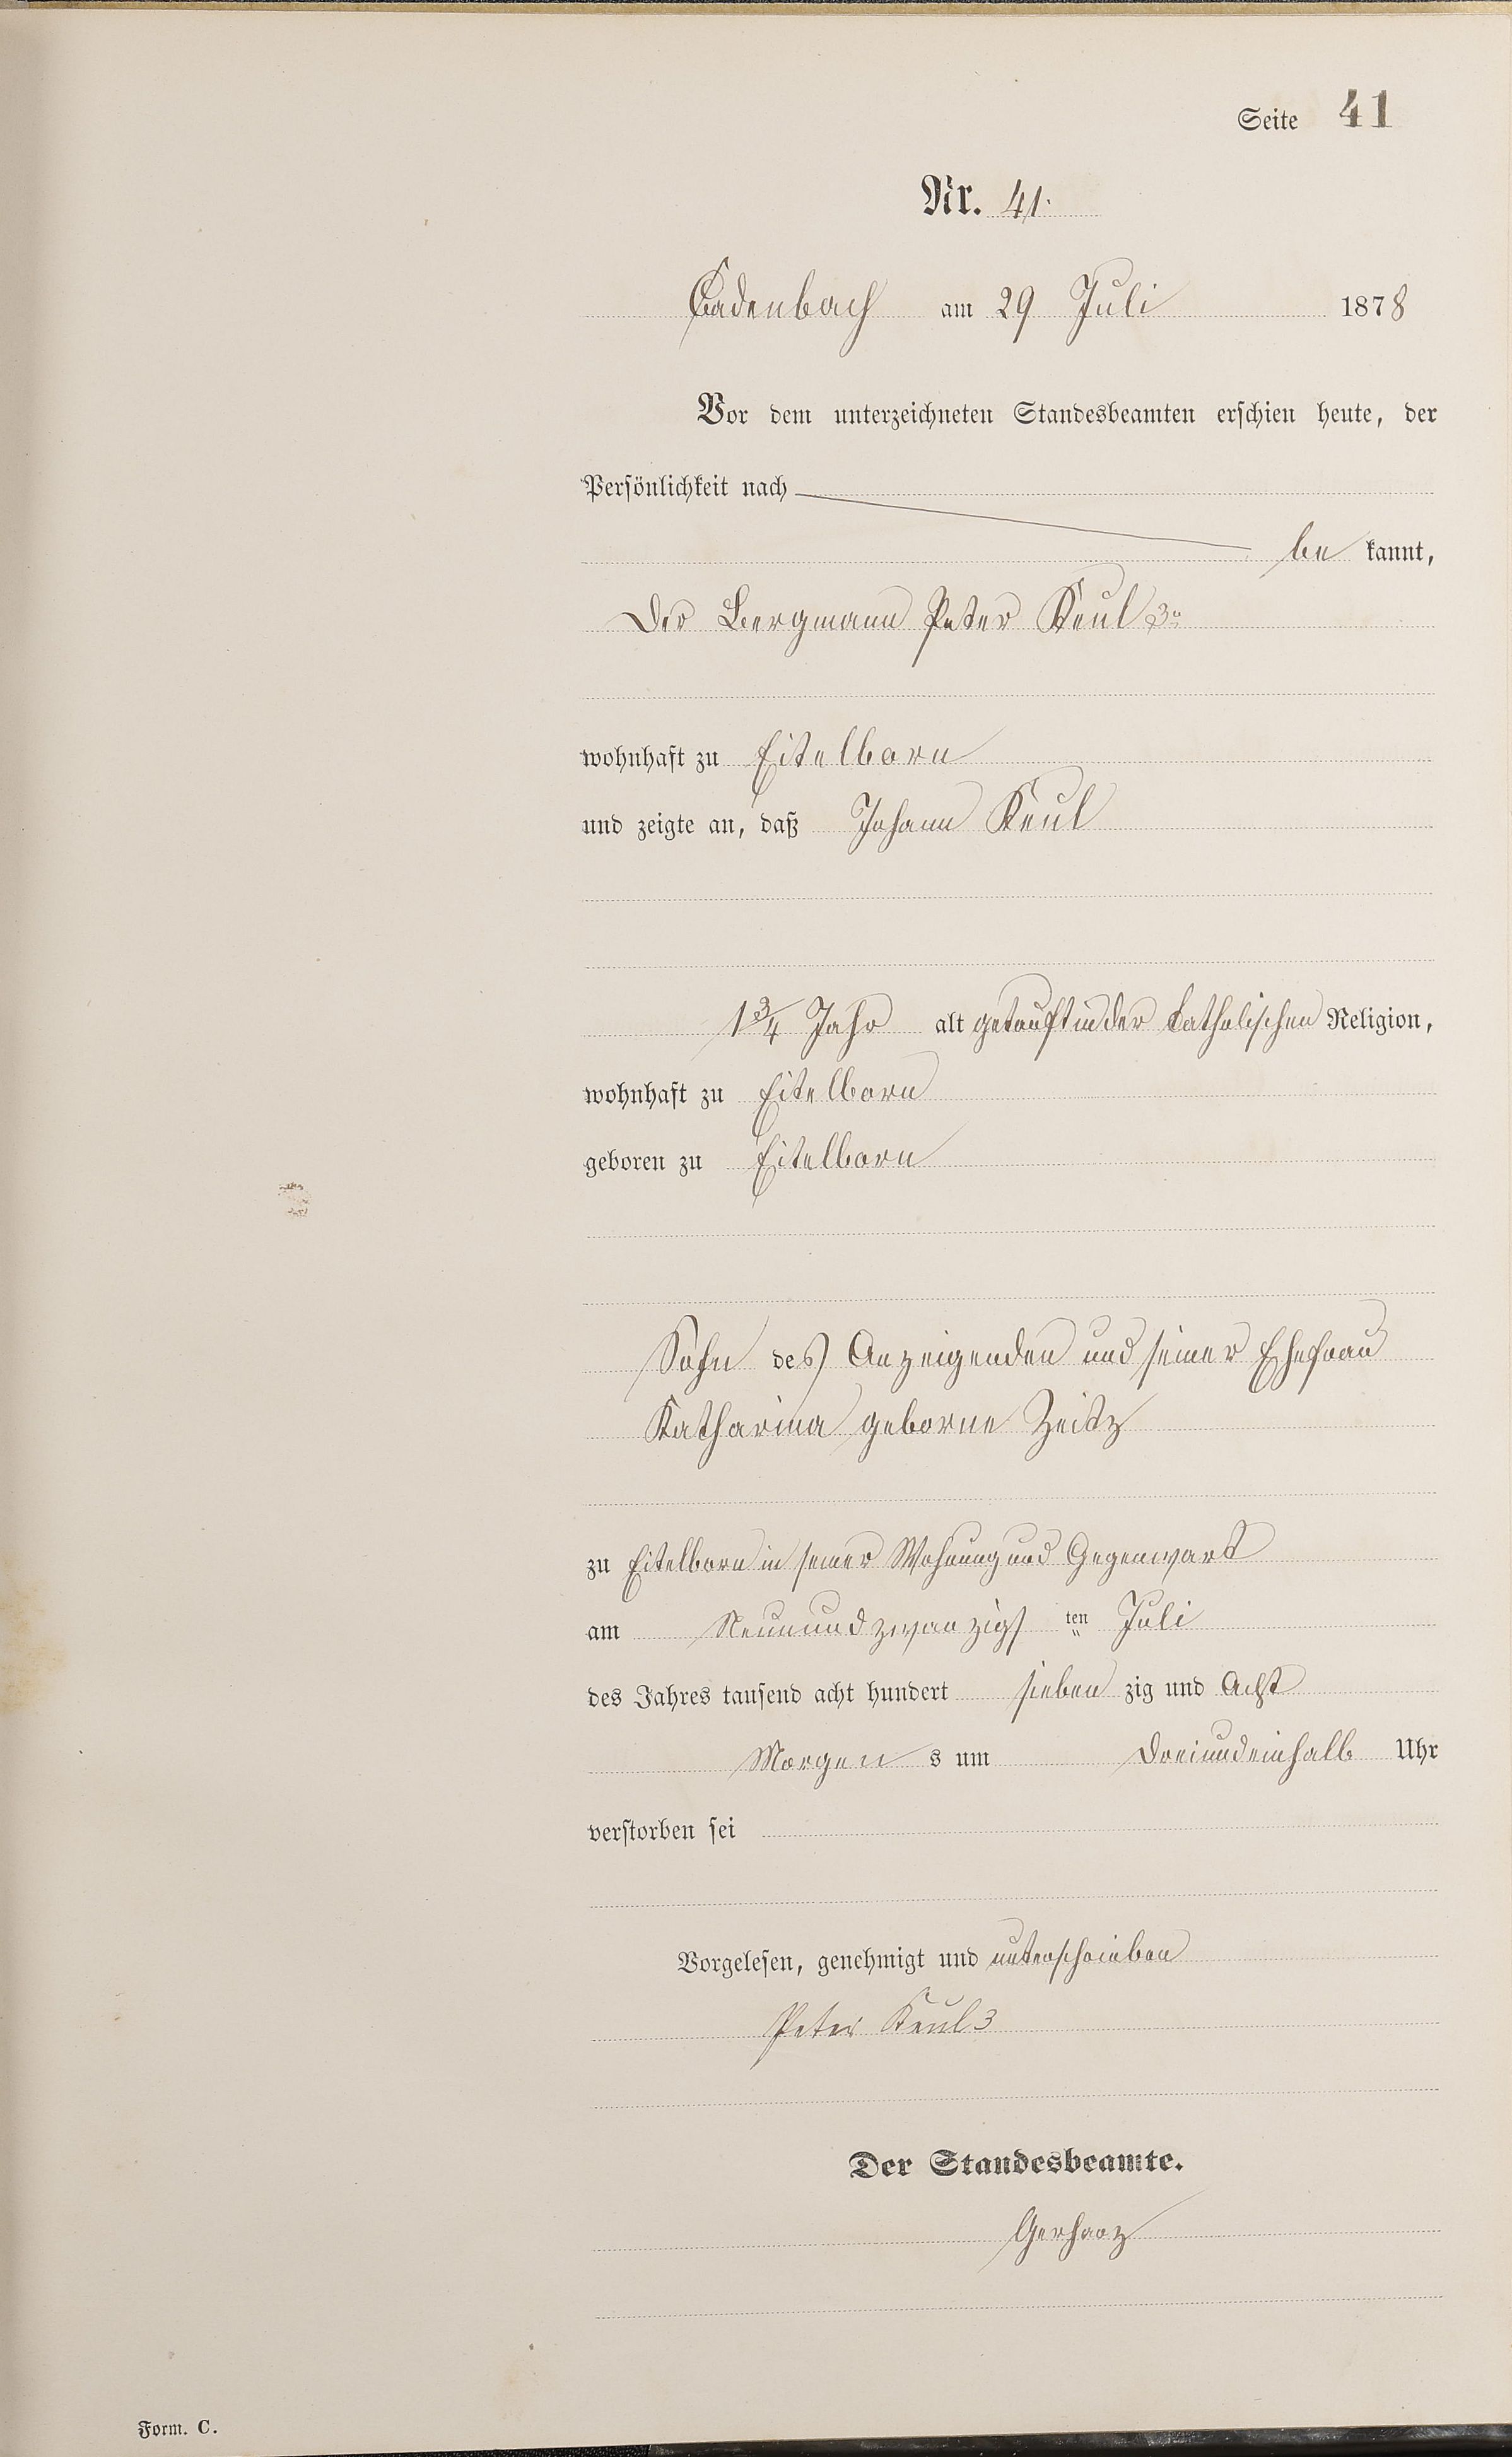 Seite 41
Nr. 41.
Cadenbach am 29 Juli 1878
Vor dem unterzeichneten Standesbeamten erschien heute, der
Persönlichkeit nach
be kannt,
der Bergmann Peter Keul 3r
wohnhaft zu Eitelborn
und zeigte an, daß Johann Keul
1 3/4 Jahr alt getauft in der katholischen Religion,
wohnhaft zu Eitelborn
geboren zu Eitelborn
Sohn des Anzeigenden und seiner Ehefrau
Katharina geborne Zeitz
zu Eitelborn in seiner Wohnung und Gegenwart
am Neunundzwanzigs ten Juli
des Jahres tausend acht hundert sieben zig und Acht
Morgen s um dreiundeinhalb Uhr
verstorben sei
Vorgelesen, genehmigt und unterschrieben
Peter Keul 3
Der Standesbeamte.
Gerharz
Form. C.